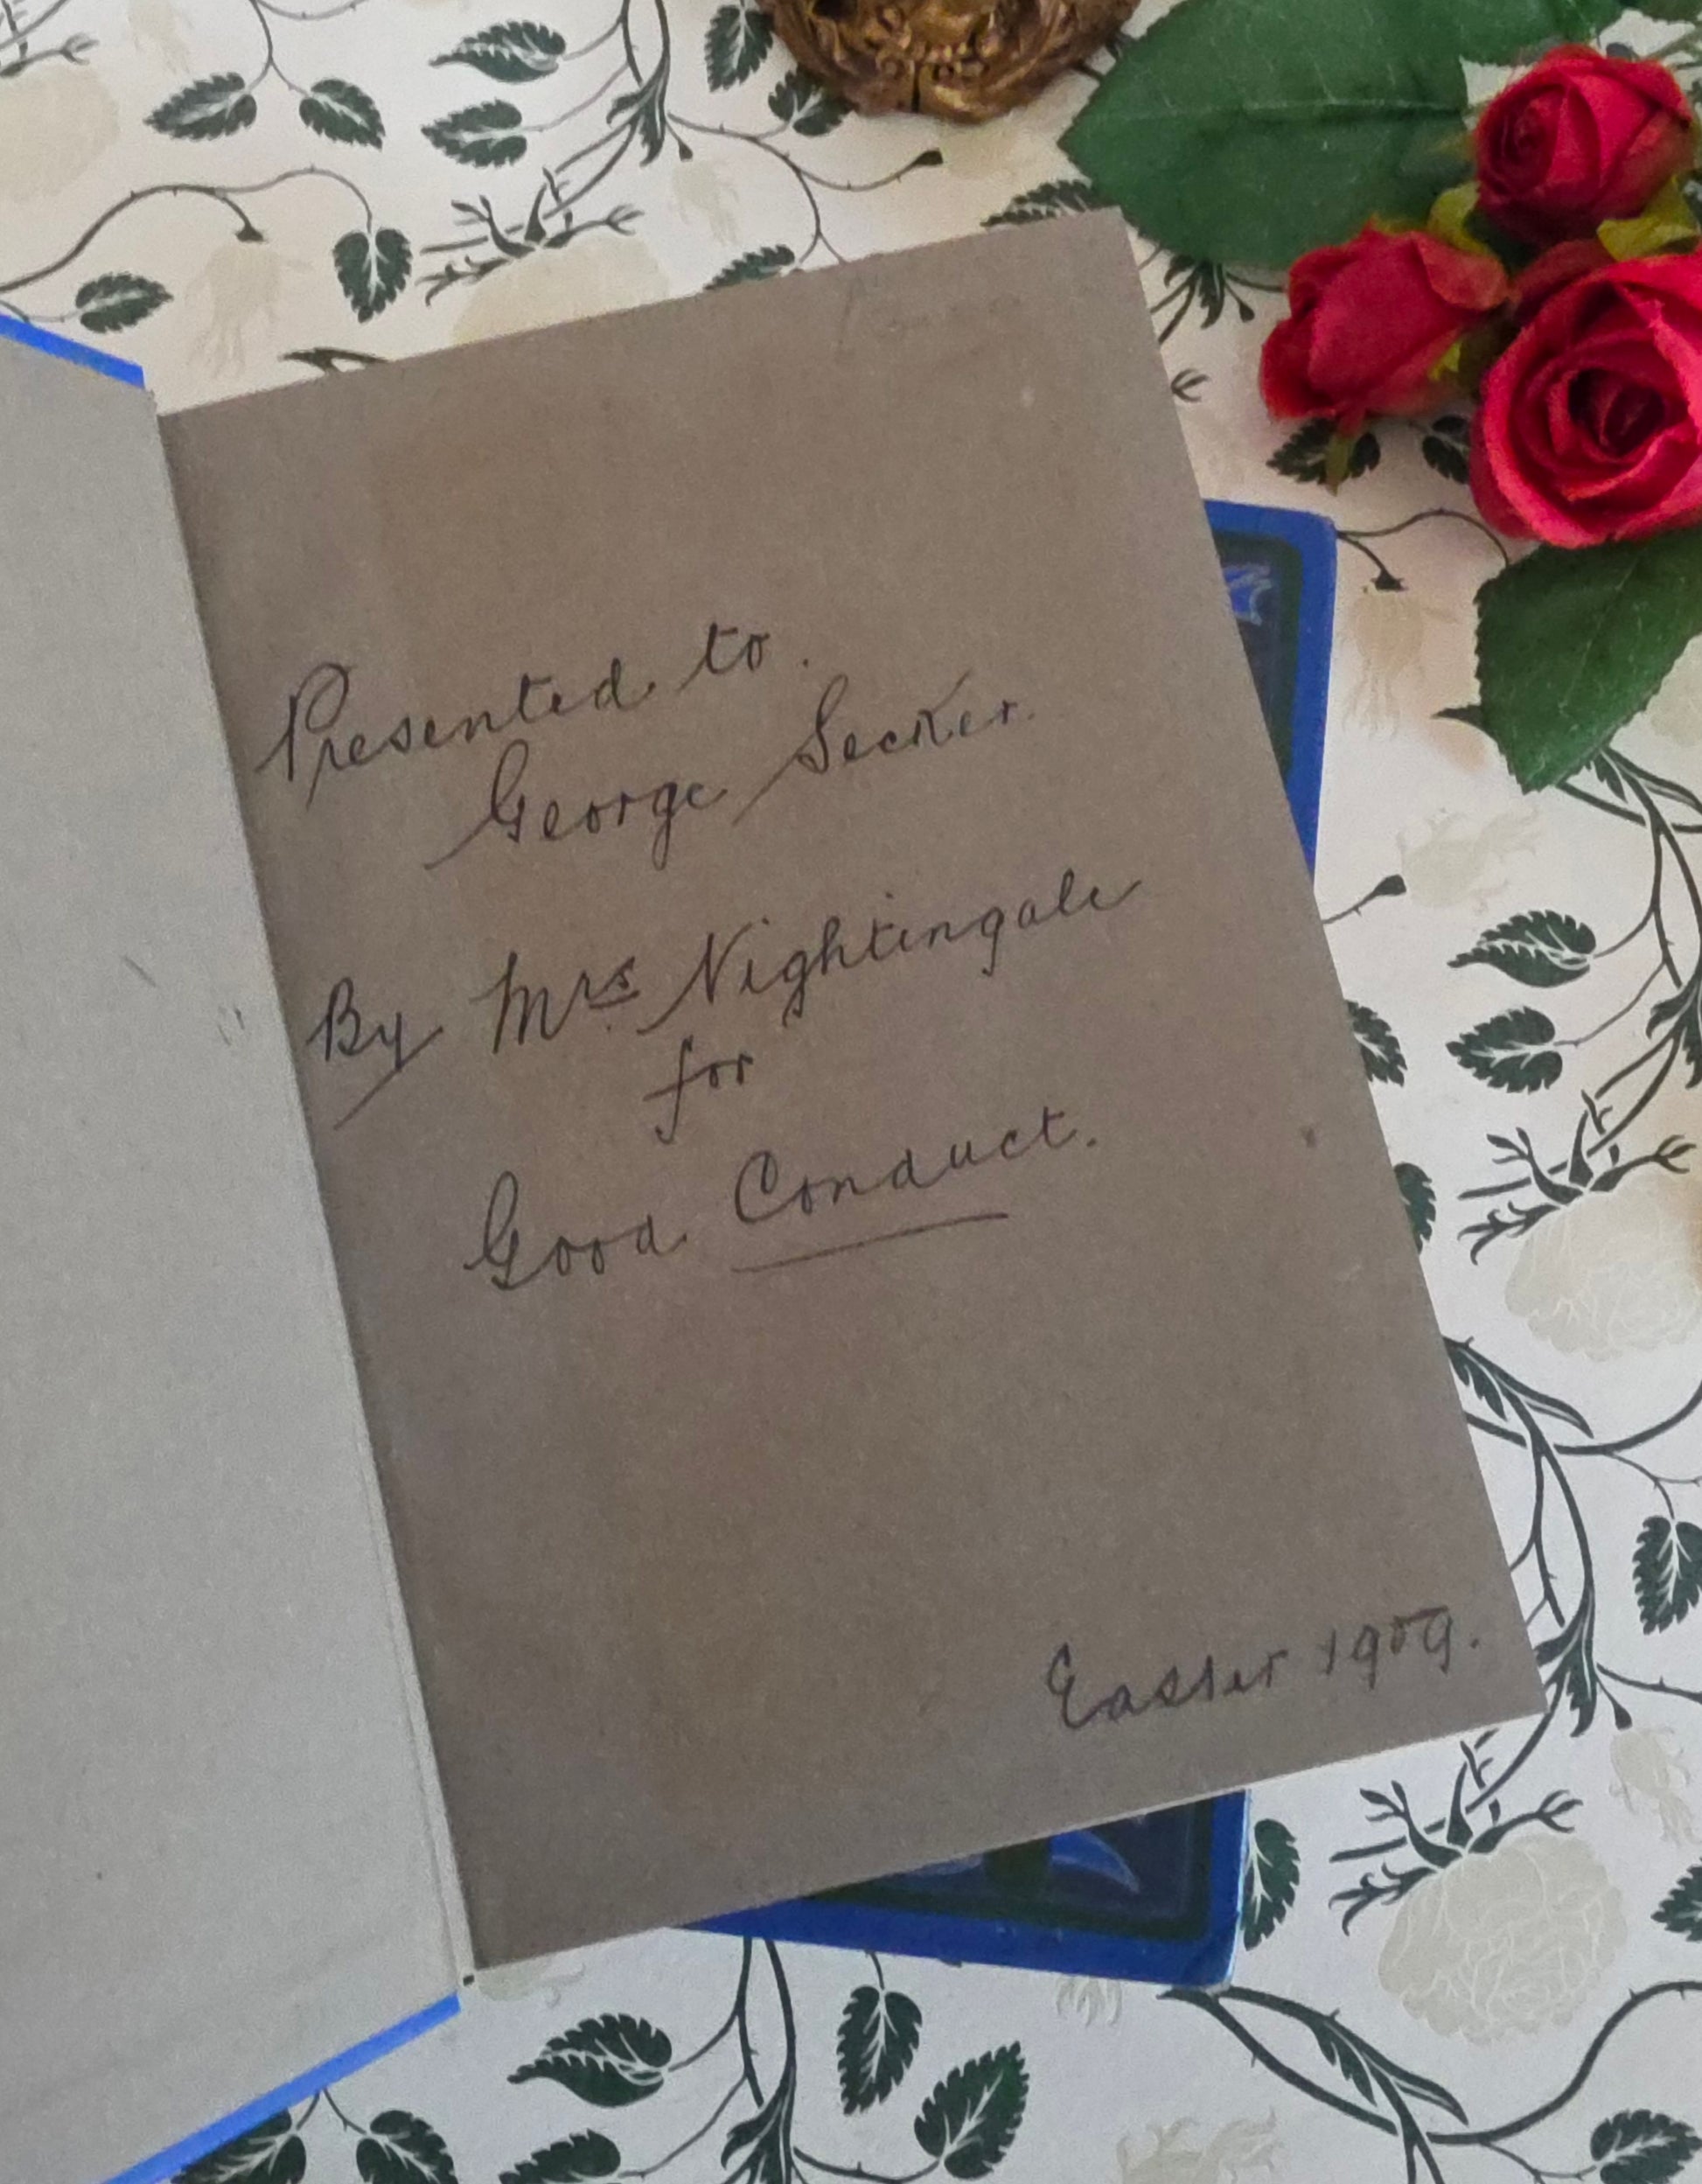 Presented to.
George Secker.
By Mrs. Nightingale
for
Good Conduct.
Easter 1909.